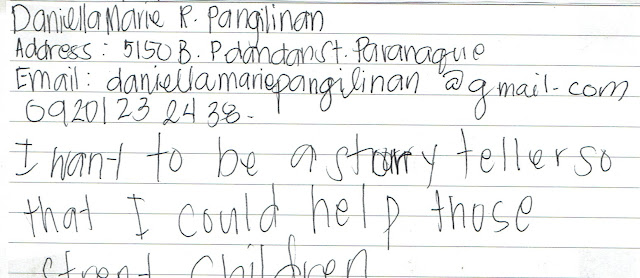 Daniella Marie R. Pangilinan
Address: 5150 B. Pdandan St. Paranaque
Email: daniellamariepangilinan@gmail.com
0920123 2438.
I want to be a story teller so
that I could help those
street children